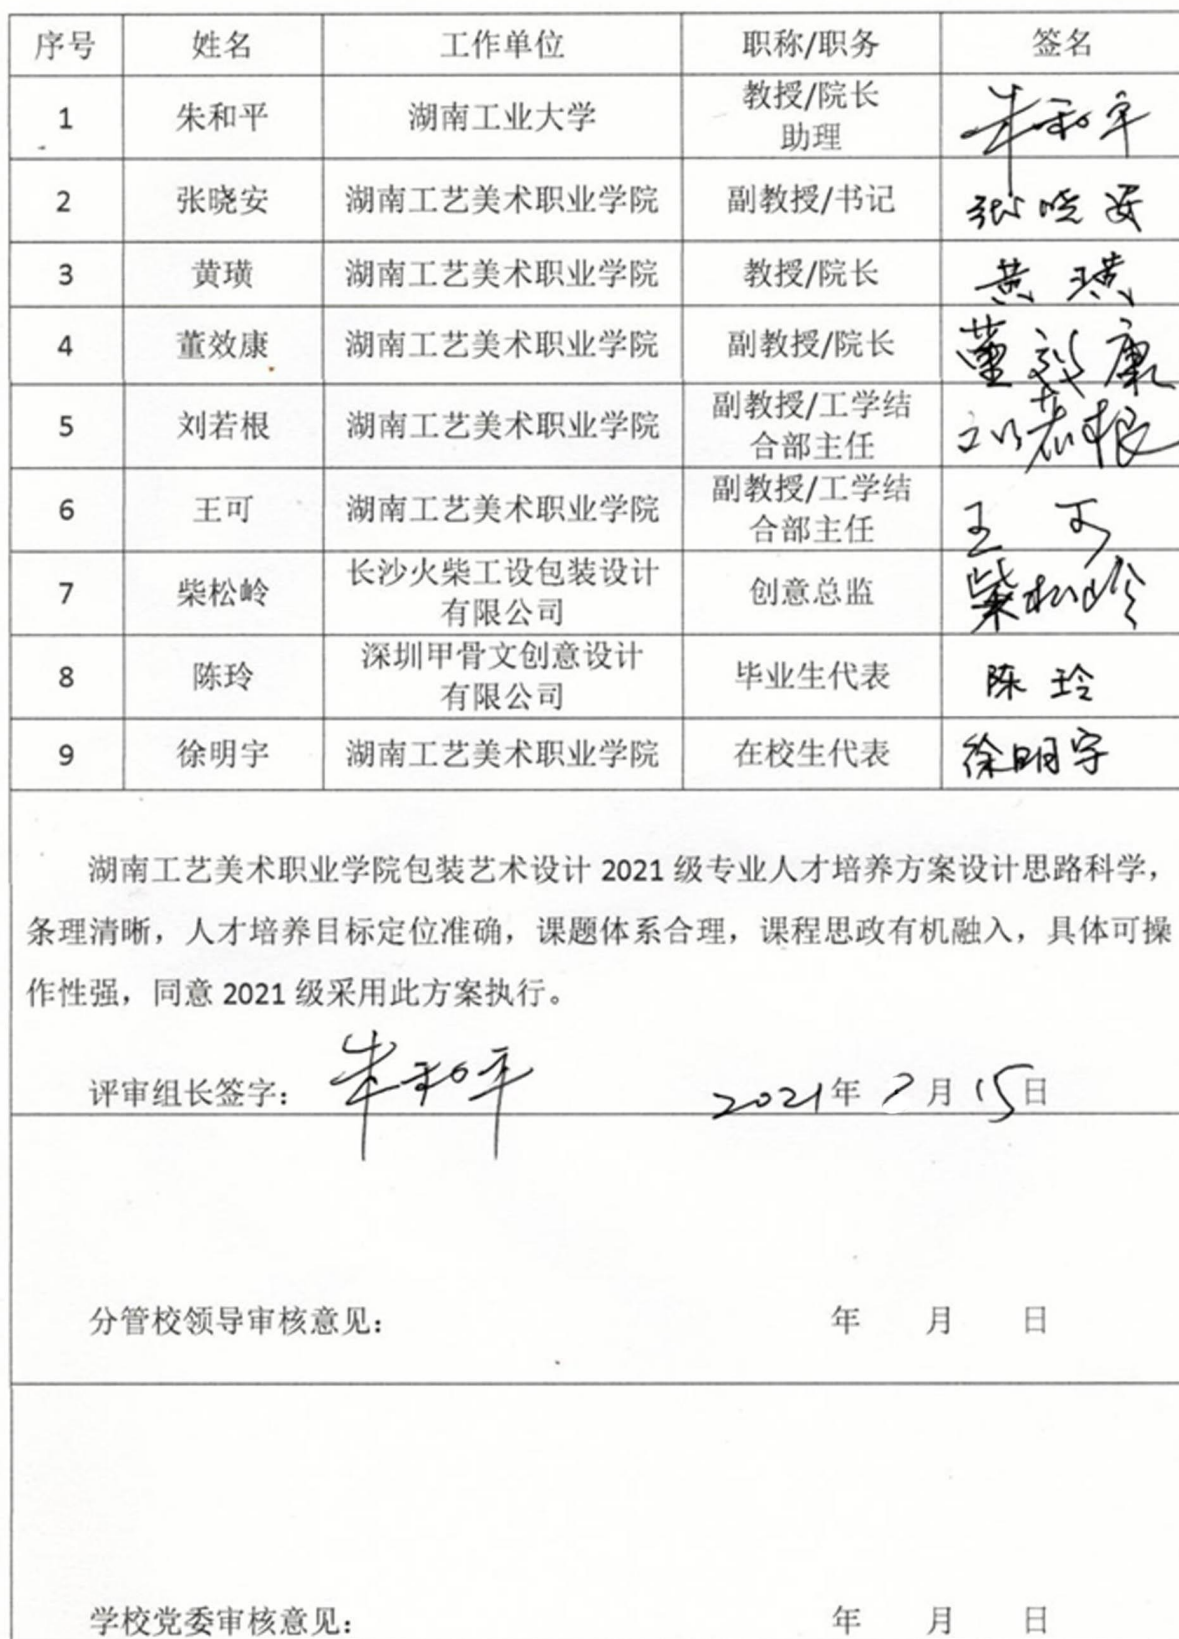 序号 姓名 工作单位 职称/职务 签名
1 朱和平 湖南工业大学 教授/院长助理 朱和平
2 张晓安 湖南工艺美术职业学院 副教授/书记 张晓安
3 黄璜 湖南工艺美术职业学院 教授/院长 黄璜
4 董效康 湖南工艺美术职业学院 副教授/院长 董效康
5 刘若根 湖南工艺美术职业学院 副教授/工学结合部主任 刘若根
6 王可 湖南工艺美术职业学院 副教授/工学结合部主任 王可
7 柴松岭 长沙火柴工设包装设计有限公司 创意总监 柴松岭
8 陈玲 深圳甲骨文创意设计有限公司 毕业生代表 陈玲
9 徐明宇 湖南工艺美术职业学院 在校生代表 徐明宇
湖南工艺美术职业学院包装艺术设计 2021 级专业人才培养方案设计思路科学，
条理清晰，人才培养目标定位准确，课题体系合理，课程思政有机融入，具体可操
作性强，同意 2021 级采用此方案执行。
评审组长签字： 朱和平 2021年 7月 15日
分管校领导审核意见： 年 月 日
学校党委审核意见： 年 月 日